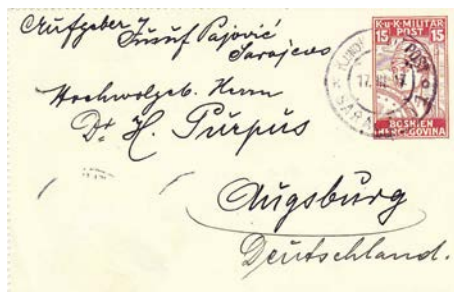 Aufgeber Jusuf Pajović
Sarajevo
K.u.K. MILITÄR
15 POST 15
17. III. 17
SARA
BOSNIEN
HERCEGOVINA
Hochwolgeb. Herrn
Dr. H. Purpus
Augsburg
Deutschland.